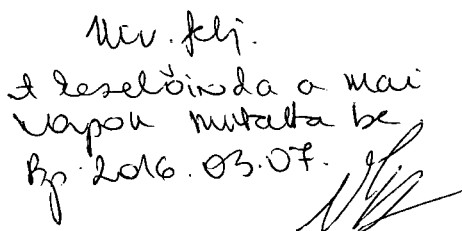 Hiv. felj.
A kezelőiroda a mai
napon mutatta be
Bp. 2016. 03. 07.